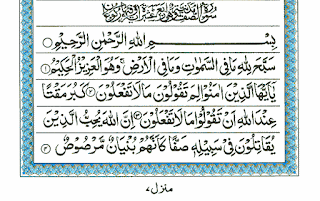 بِسْمِ اللهِ الرَّحْمٰنِ الرَّحِيْمِ
سَبَّحَ لِلّٰهِ مَا فِي السَّمٰوٰتِ وَمَا فِي الْاَرْضِ ۚ وَهُوَ الْعَزِيْزُ الْحَكِيْمُ ۱
يٰۤاَيُّهَا الَّذِيْنَ اٰمَنُوْا لِمَ تَقُوْلُوْنَ مَا لَا تَفْعَلُوْنَ ۲ كَبُرَ مَقْتًا
عِنْدَ اللهِ اَنْ تَقُوْلُوْا مَا لَا تَفْعَلُوْنَ ۳ اِنَّ اللهَ يُحِبُّ الَّذِيْنَ
يُقَاتِلُوْنَ فِيْ سَبِيْلِهٖ صَفًّا كَاَنَّهُمْ بُنْيَانٌ مَّرْصُوْصٌ ۴
منزل ۷